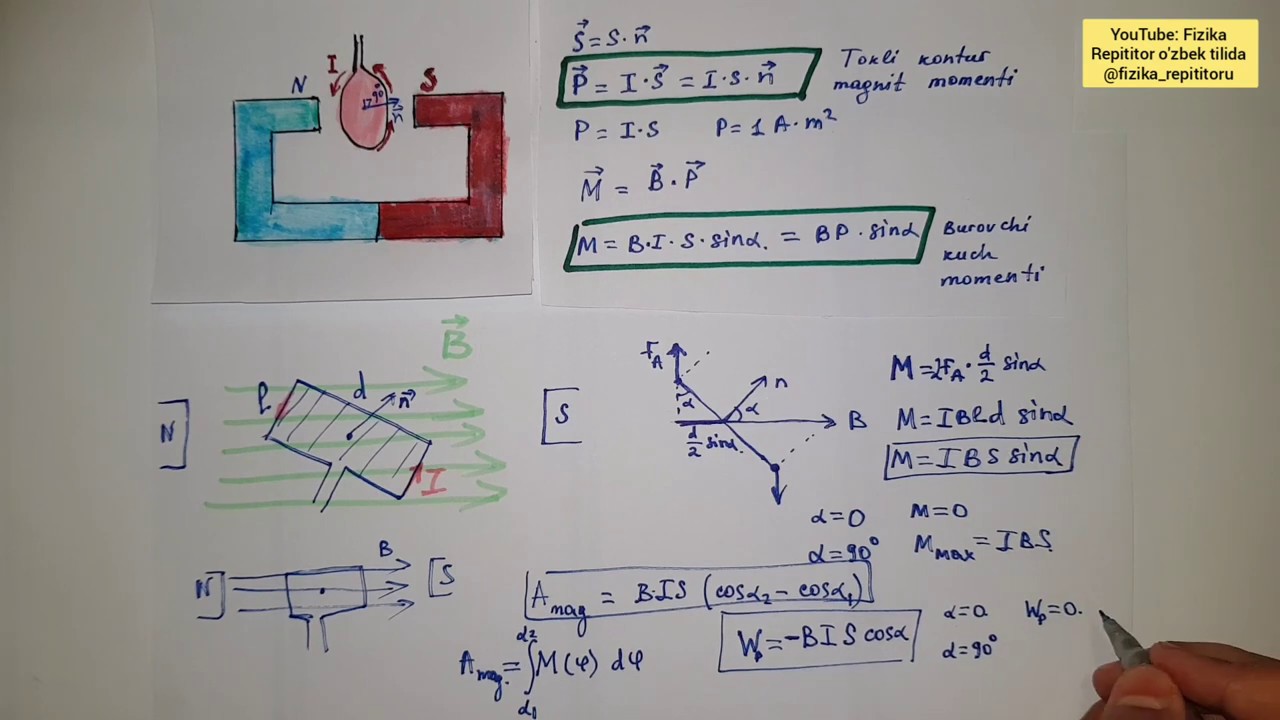 YouTube: Fizika
Repititor o'zbek tilida
@fizika_repititoru
I
N
S
90°
n⃗
S⃗ = S · n⃗
P⃗ = I · S⃗ = I · S · n⃗
Tokli kontur
magnit momenti
P = I · S P = 1 A · m²
M⃗ = B⃗ · P⃗
M = B · I · S · sinα. = BP · sinα
Burovchi
kuch
momenti
B⃗
N
ℓ
d
n⃗
I
S
F_A
α
n
α
B
d/2 sinα.
M = 2F_A · d/2 sinα
M = IBℓd sinα
M = IBS sinα
α = 0 M = 0
α = 90° M_max = IBS.
N
B
S
A_mag = B·IS (cosα₂ − cosα₁)
W_p = −BIS cosα
α = 0. W_p = 0.
α = 90°
A_mag. = ∫_{α₁}^{α₂} M(φ) dφ